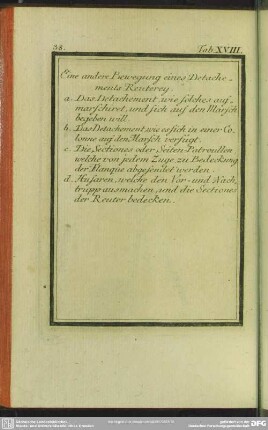 38. Tab. XVIII.
Eine andere Bewegung eines Detache-
ments Reuterey.
a. Das Detachement, wie solches auf-
marschiret, und sich auf den Marsch
begeben will.
b. Das Detachement wie es sich in einer Co-
lonne auf den Marsch verfügt.
c. Die Sectiones oder Seiten-Patroullen
welche von jedem Zuge zu Bedeckung
der Flanque abgesendet werden.
d. Husaren, welche den Vor- und Nach-
trupp ausmachen, und die Sectiones
der Reuter bedecken.